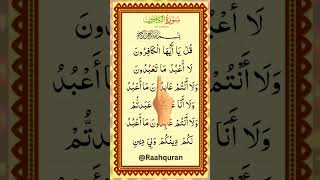 سُوْرَةُ الْكَافِرُوْنَ
بِسْمِ اللهِ الرَّحْمٰنِ الرَّحِيْمِ
قُلْ يَا أَيُّهَا الْكَافِرُونَ
لَا أَعْبُدُ مَا تَعْبُدُونَ
وَلَا أَنْتُمْ عَابِدُونَ مَا أَعْبُدُ
وَلَا أَنَا عَابِدٌ مَا عَبَدتُّمْ
وَلَا أَنْتُمْ عَابِدُونَ مَا أَعْبُدُ
لَكُمْ دِينُكُمْ وَلِيَ دِينِ
@Raahquran